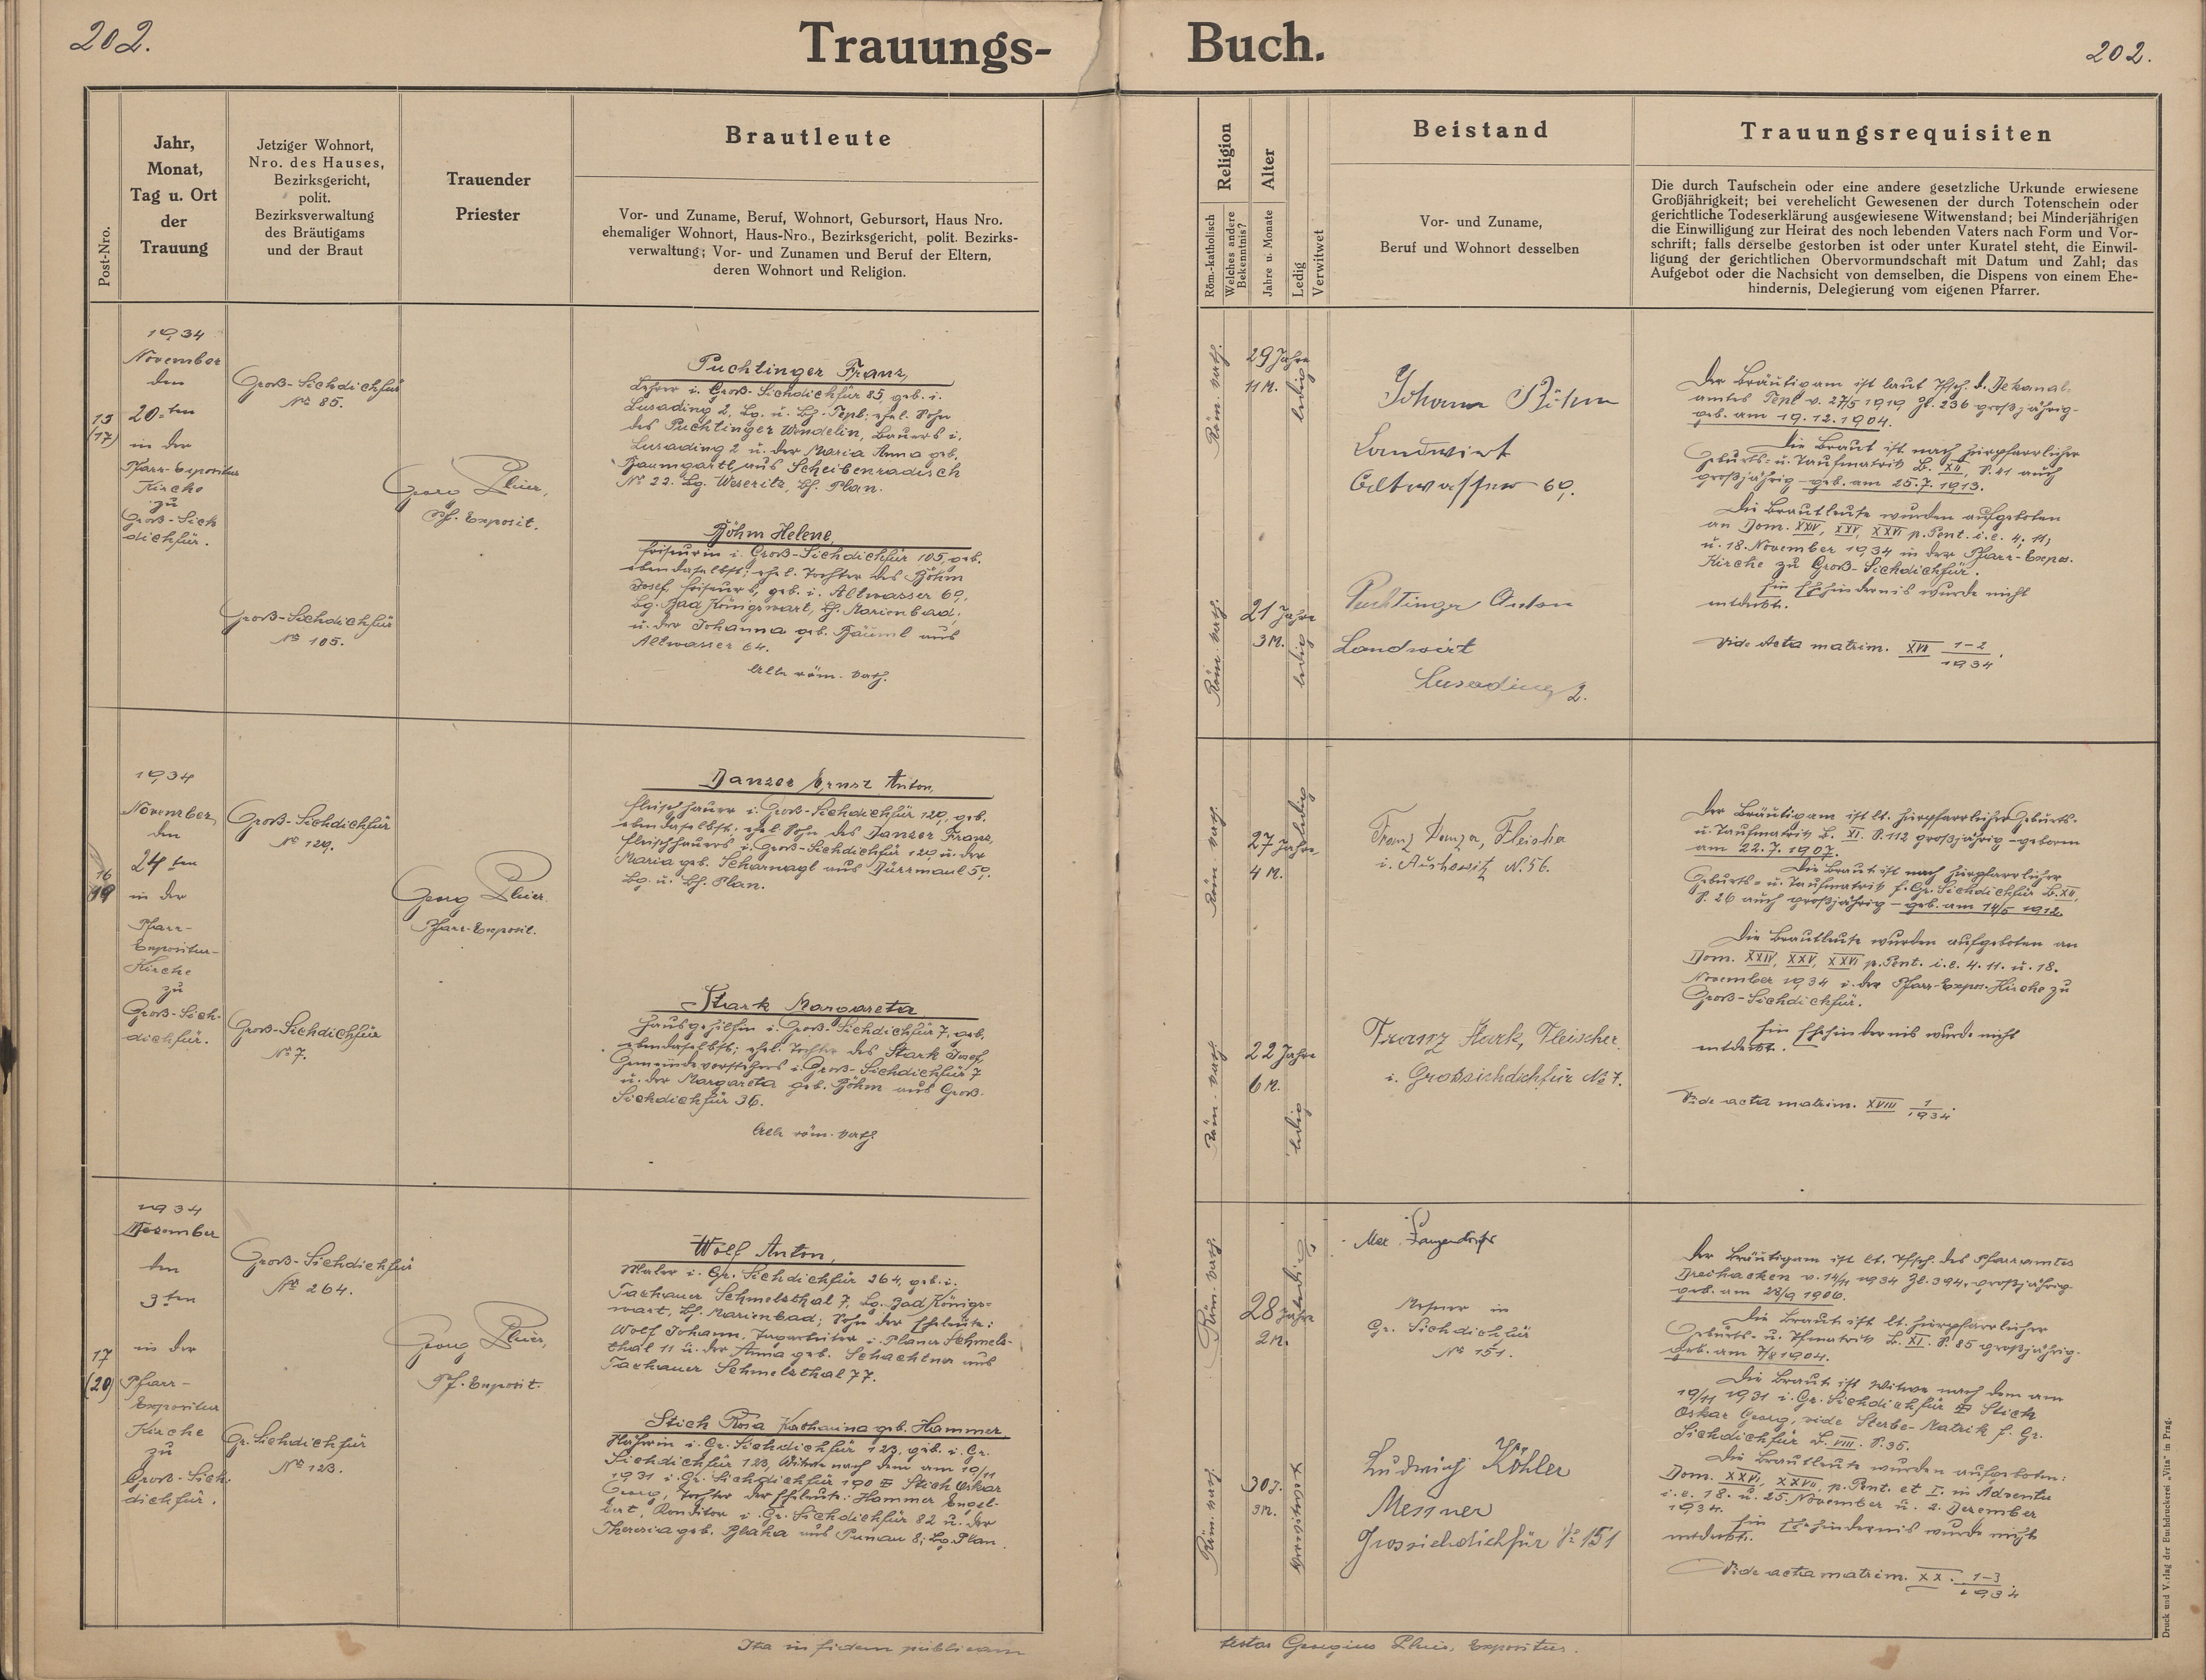 202.
Trauungs-
Buch.
202.
Post-Nro.
Jahr,
Monat,
Tag u. Ort
der
Trauung
Jetziger Wohnort,
Nro. des Hauses,
Bezirksgericht,
polit.
Bezirksverwaltung
des Bräutigams
und der Braut
Trauender
Priester
Brautleute
Vor- und Zuname, Beruf, Wohnort, Gebursort, Haus Nro.
ehemaliger Wohnort, Haus-Nro., Bezirksgericht, polit. Bezirks-
verwaltung; Vor- und Zunamen und Beruf der Eltern,
deren Wohnort und Religion.
Religion
Röm.-katholisch
Welches andere
Bekenntnis?
Alter
Jahre u. Monate
Ledig
Verwitwet
Beistand
Vor- und Zuname,
Beruf und Wohnort desselben
Trauungsrequisiten
Die durch Taufschein oder eine andere gesetzliche Urkunde erwiesene
Großjährigkeit; bei verehelicht Gewesenen der durch Totenschein oder
gerichtliche Todeserklärung ausgewiesene Witwenstand; bei Minderjährigen
die Einwilligung zur Heirat des noch lebenden Vaters nach Form und Vor-
schrift; falls derselbe gestorben ist oder unter Kuratel steht, die Einwil-
ligung der gerichtlichen Obervormundschaft mit Datum und Zahl; das
Aufgebot oder die Nachsicht von demselben, die Dispens von einem Ehe-
hindernis, Delegierung vom eigenen Pfarrer.
(17)
1934
November
den
20-ten
in der
Pfarr-Expositur
Kirche
zu
Groß-Sich
dichfür.
Groß-Sichdichfür
No 85.
Groß-Sichdichfür
No 105.
Georg Pluier,
Pf. Exposit.
Puchtinger Franz,
Lehrer i. Groß-Sichdichfür 85, geb. i.
Lusading 2, Bg. u. Bh. Tepl; ehel. Sohn
des Puchtinger Wendelin, Bauers i.
Lusading 2 u. der Maria Anna geb.
Baumgartl aus Scheibenradisch
No 22. Bg. Weseritz, Bh. Plan.
Böhm Helene,
Friseurin i. Groß-Sichdichfür 105, geb.
ebendaselbst; ehel. Tochter des Böhm
Josef, Friseurs, geb. i. Altwasser 69,
Bg. Bad Königswart, Bh. Marienbad,
u. der Johanna geb. Bäuml aus
Altwasser 64.
Alle röm. kath.
Röm. kath.
29 Jahre
11 M.
ledig
Röm. kath.
21 Jahre
3 M.
ledig
Johann Böhm
Landwirt
Altwasser 69.
Puchtinger Anton
Landwirt
Lusading 2.
Der Bräutigam ist laut Tfsch. d. Dekanal-
amtes Tepl v. 27/5 1919 Zl. 236 großjährig-
geb. am 19.12.1904.
Die Braut ist nach hierpfarrlicher
Geburts- u. Taufmatrik B. XII, S. 41 auch
großjährig - geb. am 25.7.1913.
Die Brautleute wurden aufgeboten
an Dom. XXIV, XXV, XXVI p. Pent. i.e. 4, 11,
u. 18. November 1934 in der Pfarr-Expos.
Kirche zu Groß-Sichdichfür.
Ein Ehehindernis wurde nicht
entdeckt.
Vide Acta matrim. XVI 1-2/1934.
16
1934
November,
den
24 ten
in der
Pfarr-
Expositur-
Kirche
zu
Groß-Sich-
dichfür.
Groß-Sichdichfür
No 129.
Groß-Sichdichfür
No 7.
Georg Pluier.
Pfarr-Exposit.
Danzer Ernst Anton,
Fleischhauer i. Groß-Sichdichfür 129, geb.
ebendaselbst; ehel. Sohn des Danzer Franz,
Fleischhauers i. Groß-Sichdichfür 129 u. der
Maria geb. Scharnagl aus Dürrmaul 59.
Bg. u. Bh. Plan.
Stark Margareta,
Hausgehilfin i. Groß-Sichdichfür 7, geb.
ebendaselbst; ehel. Tochter des Stark Josef,
Gemeindevorstehers i. Groß-Sichdichfür 7
u. der Margareta geb. Böhm aus Groß-
Sichdichfür 36.
Alle röm. kath.
Röm. kath.
27 Jahre
4 M.
ledig
Röm. kath.
22 Jahre
6 M.
ledig
Franz Danzer, Fleischer
i. Auschowitz N. 56.
Franz Stark, Fleischer
i. Grossichdichfür No 7.
Der Bräutigam ist lt. hierpfarrlicher Geburts-
u. Taufmatrik B. XI. S. 112 großjährig - geboren
am 22.7.1907.
Die Braut ist nach hierpfarrlicher
Geburts- u. Taufmatrik f. Gr. Sichdichfür B. XII,
S. 26 auch großjährig - geb. am 14/5 1912.
Die Brautleute wurden aufgeboten an
Dom. XXIV, XXV, XXVI p. Pent. i.e. 4. 11. u. 18.
November 1934 i. der Pfarr-Expos. Kirche zu
Groß-Sichdichfür.
Ein Ehehindernis wurde nicht
entdeckt.
Vide acta matrim. XVIII 1/1934.
17
(20)
1934
Dezember
den
3 ten
in der
Pfarr-
Expositur
Kirche
zu
Groß-Sich-
dichfür.
Groß-Sichdichfür
No 264.
Gr. Sichdichfür
No 123.
Georg Pluier,
Pf. Exposit.
Wolf Anton,
Maler i. Gr. Sichdichfür 264, geb. i.
Tachauer Schmelzthal 7, Bg. Bad Königs-
wart, Bh. Marienbad; Sohn der Eheleute:
Wolf Johann, Sagarbeiter i. Planer Schmelz-
thal 11 u. der Anna geb. Schachtner aus
Tachauer Schmelzthal 77.
Stich Rosa Katharina geb. Hammer
Näherin i. Gr. Sichdichfür 123, geb. i. Gr.
Sichdichfür 123, Witwe nach dem am 19/11
1931 i. Gr. Sichdichfür 190 † Stich Oskar
Georg, Tochter der Eheleute: Hammer Engel-
bert, Konditor i. Gr. Sichdichfür 82 u. der
Theresia geb. Blaha aus Punau 8; Bg. Plan.
Röm. kath.
28 Jahre
2 M.
ledig
Röm. kath.
30 J.
3 M.
verwitwet
Max
Mesner in
Gr. Sichdichfür
No 151.
Ludwig Köhler
Messner
Grossichdichfür No 151
Der Bräutigam ist lt. Tfsch. des Pfarramtes
Dreihacken v. 14/11 1934 Zl. 394, großjährig-
geb. am 28/9 1906.
Die Braut ist lt. hierpfarrlicher
Geburts- u. Tfmatrik B. XI. S. 85 großjährig-
geb. am 7/8 1904.
Die Braut ist Witwe nach dem am
19/11 1931 i. Gr. Sichdichfür † Stich
Oskar Georg, vide Sterbe-Matrik f. Gr.
Sichdichfür B. VIII. S. 35.
Die Brautleute wurden aufgeboten:
Dom. XXVI, XXVII, p. Pent. et I. in Adventu
i.e. 18. u. 25. November u. 2. Dezember
1934.
Ein Ehehindernis wurde nicht
entdeckt.
Vide acta matrim. XX. 1-3/1934
Ita in fidem publicam
testor Georgius Pluier, Expositus.
Druck und Verlag der Buchdruckerei „Vita" in Prag.